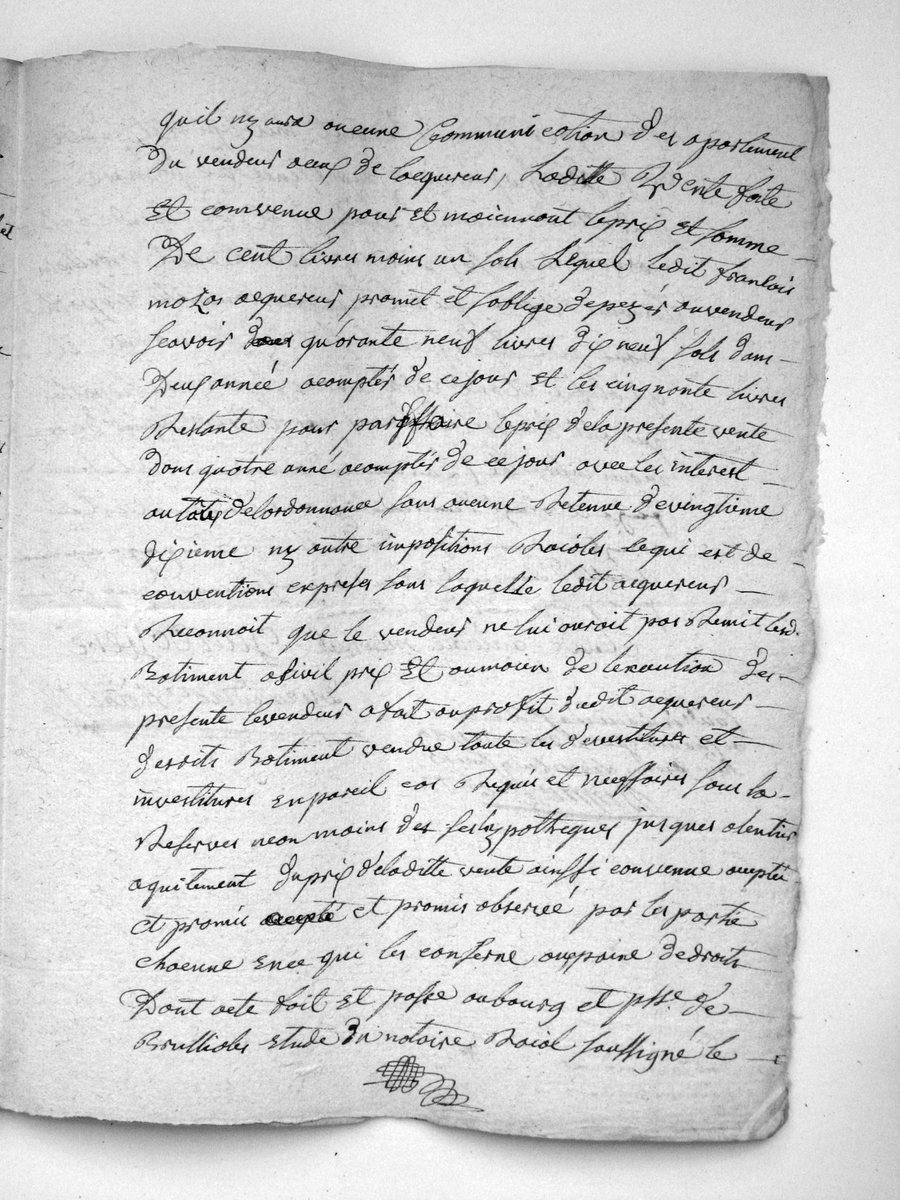 quil ny aura aucune Communication des apartement
Du vendeur aceux de lacquereur, Laditte Vente faite
Et convenue pour et moiennant le prix et somme
De cent livres moins un sols Lequel ledit francois
acquereur promet et soblige depayér auvendeur
scavoir quarante neuf livres dix neuf sols dans
Deux année acomptér de cejour et les cinquante livres
Restante pour parffaire leprix dela presente vente
dans quatre anné acomptér de cejour avec les interest
au taux delordonnance sans aucune Retenue de vingtieme
dixieme ny autre impositions Roiales cequi est de
conventions expresse sans laquelle ledit acquereur
Reconnoit que le vendeur ne lui auroit pas Remit lesd.
Batiment asivil prix Et aumoien de lexecution des
presente levendeur afait auprofit dudit acquereur
desdits Batiment vendue toute les devestitures et
investitures enpareil cas Requis et necessaires sous la
Reserves neanmoins des ses hypotheques jusques alentier
aquitement duprix deladitte vente ainssi convenue acepté
et promis et promis observé par les partie
chacune ence qui les conserne auxpaine dedroits
Dont acte fait Et passe aubourg et psse. de
Brullioles etude Du notaire Roial soussigné le